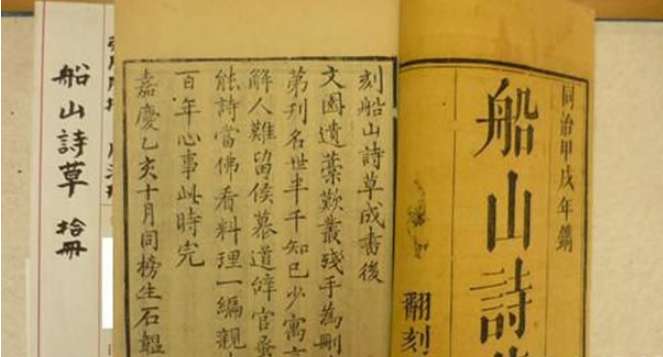 同治甲戌年鐫
船山詩
翻刻
刻船山詩草成書後
文園遺藁歎叢殘手為刪
第刊名世半千知己少寓言
解人難留侯墓道
能詩當佛看料理一編親
百年心事此時完
嘉慶乙亥十月同榜生石韞
船山詩草 拾冊